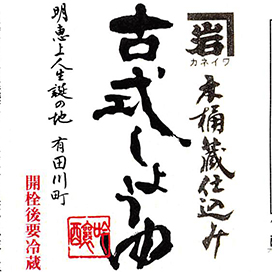 岩
カネイワ
木桶蔵仕込み
古式しょうゆ
吟醸
明恵上人生誕の地 有田川町
開栓後要冷蔵